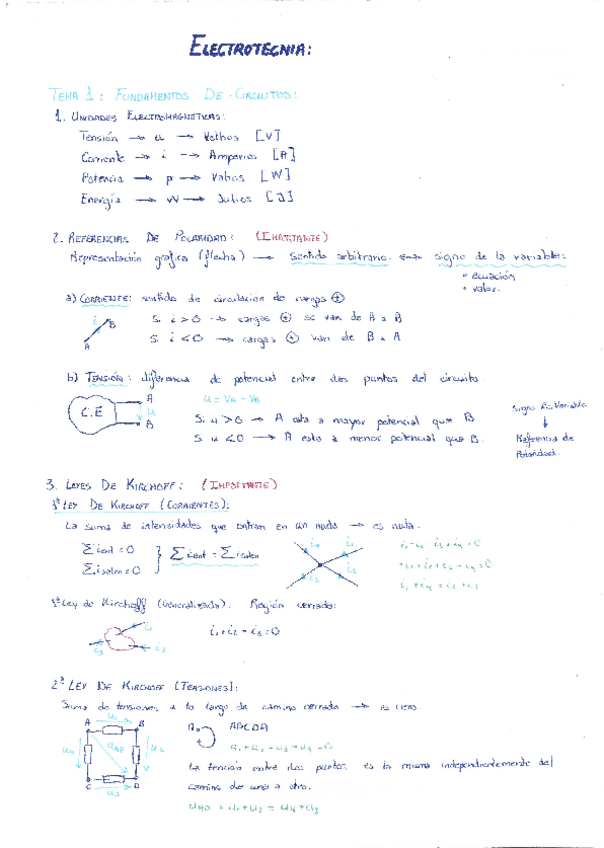 ELECTROTECNIA:
TEMA 1: FUNDAMENTOS DE CIRCUITOS:
1. UNIDADES ELECTROMAGNÉTICAS:
Tensión → u → Volthos [V]
Corriente → i → Amperios [A]
Potencia → p → Vatios [W]
Energía → W → Julios [J]
2. REFERENCIAS DE POLARIDAD: (IMPORTANTE)
Representación gráfica (flecha) → Sentido arbitrario ↔ signo de la variable:
• ecuación
• valor.
a) CORRIENTE: sentido de circulación de cargas ⊕
i B
A
Si i > 0 → cargas ⊕ se van de A a B
Si i < 0 → cargas ⊕ van de B a A
b) TENSIÓN: diferencia de potencial entre dos puntos del circuito.
C.E A u B
u = VA - VB
Si u > 0 → A esta a mayor potencial que B
Si u < 0 → A esta a menor potencial que B.
Signo Ec. Variable
↓
Referencia de
Polaridad.
3. LEYES DE KIRCHOFF: (IMPORTANTE)
1ª LEY DE KIRCHOFF (CORRIENTES):
La suma de intensidades que entran en un nudo → es nula.
Σ ient = 0
Σ isalen = 0
Σ ient = Σ isalen
1ª Ley de Kirchoff (Generalizada). Región cerrada:
i1 + i2 - i3 = 0
2ª LEY DE KIRCHOFF (TENSIONES):
Suma de tensiones a lo largo de camino cerrado →
A B
C D
ABCDA
La tención entre dos puntos es la misma independientemente del
camino de uno a otro.
uAD = u1 + u2 = u4 + u3